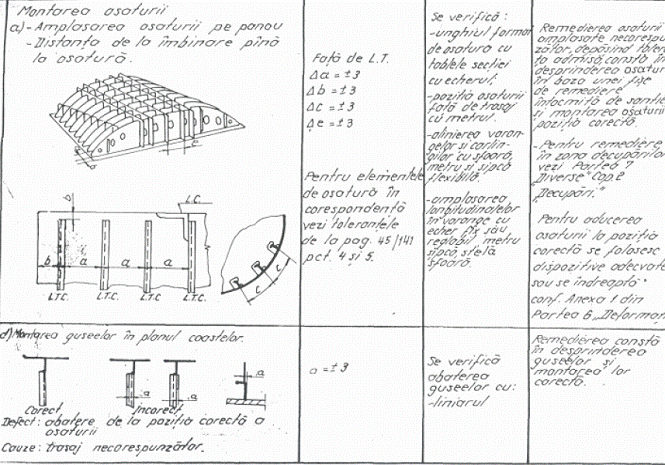 Montarea osaturii
a)- Amplasarea osaturii pe panou
- Distanța de la îmbinare pînă
la osatură.
b
L.C.
b
a
a
a
L.T.C.
L.T.C.
L.T.C.
L.T.C.
c
c
Față de L.T.
Δa = ±3
Δb = ±3
Δc = ±3
Δe = ±3
Pentru elementele
de osatură în
corespondență
vezi toleranțele
de la pag. 45/141
pct. 4 și 5.
Se verifică:
-unghiul format
de osatură cu
tablele secției
cu echerul;
-poziția osaturii
față de trasaj
cu metrul.
-alinierea varan-
gelor și carlin-
gilor cu sfoară,
metru și șipcă
flexibilă.
-amplasarea
longitudinalelor
în varange cu
echer fix sau
reglabil metru
șipcă, stelă
sfoară.
Remedierea osaturii
amplasate necorespu
zător, depășind toleran
ța admisă, constă în
desprinderea osaturi
în baza unei fișe
de remediere
întocmită de șantie
și montarea osaturii
poziția corectă.
-Pentru remediere
în zona decupărilor
vezi Partea 7
"Diverse" Cap. 2
"Decupări."
Pentru aducerea
osaturii la poziția
corectă se folosesc
dispozitive adecvate
sau se îndreaptă
conf. Anexa 1 din
Partea 6 "Deformaț
d) Montarea guseelor în planul coastelor.
a
a
a
Corect
Incorect
Defect: abatere de la poziția corectă a
osaturii
Cauze: trasaj necorespunzător.
a = ±3
Se verifică
abaterea
guseelor cu:
-liniarul
Remedierea constă
în desprinderea
guseelor și
montarea lor
corectă.